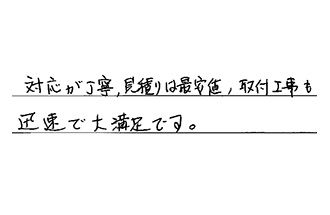 対応が丁寧,見積りは最安値,取付工事も
迅速で大満足です。